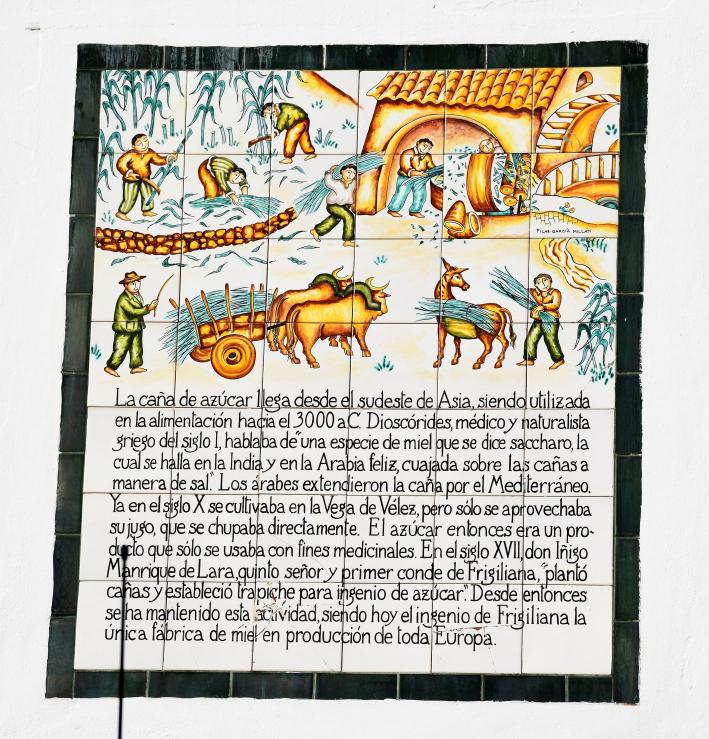 PILAR GARCÍA MILLÁN
La caña de azúcar llega desde el sudeste de Asia, siendo utilizada
en la alimentación hacia el 3000 a C. Dioscórides, médico y naturalista
griego del siglo I, hablaba de "una especie de miel que se dice saccharo, la
cual se halla en la India y en la Arabia feliz, cuajada sobre las cañas a
manera de sal". Los árabes extendieron la caña por el Mediterráneo.
Ya en el siglo X se cultivaba en la Vega de Vélez, pero sólo se aprovechaba
su jugo, que se chupaba directamente. El azúcar entonces era un pro-
ducto que sólo se usaba con fines medicinales. En el siglo XVII, don Iñigo
Manrique de Lara, quinto señor y primer conde de Frigiliana, "plantó
cañas y estableció trapiche para ingenio de azúcar". Desde entonces
se ha mantenido esta actividad, siendo hoy el ingenio de Frigiliana la
única fábrica de miel en producción de toda Europa.